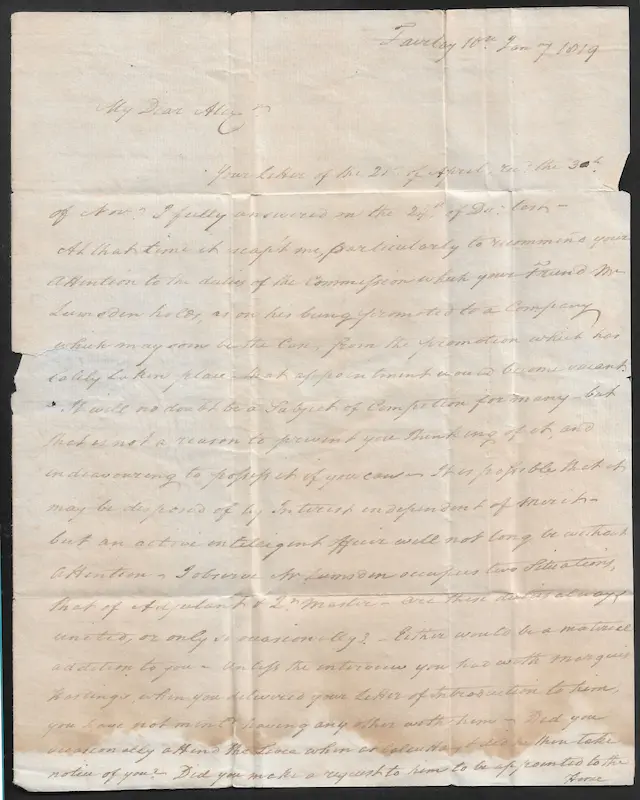 Fairley 10th Jany 1819
My Dear Alexr
Your letter of the 21st of April recd the 30th
of Novr I fully answered on the 29th of Decr last —
At that time it escap'd me, particularly to recommend your
attention to the duties of the Commission which your Friend Mr
Lumsden holds, as on his being promoted to a Company
which may soon be the Case, from the promotion which has
lately taken place that appointment would become vacant.
It will no doubt be a Subject of Competion for many — but
that is not a reason to prevent you thinking of it, and
endeavouring to possess it if you can — It is possible that it
may be disposed of by Interest independent of merit —
but an active intelligent officer will not long be without
attention — I observe Mr Lumsden occupies two Situations,
that of Adjutant & Qr Master — are these duties always
united, or only so occasionally? — Either would be a material
addition to you — Unless the interview you had with Marquis
Hastings, when you delivered your letter of Introduction to him,
you have not mentd having any other with him — Did you
occasionally attend the Levee when at Calcutta & did he then take
notice of you? Did you make a request to him to be appointed to the